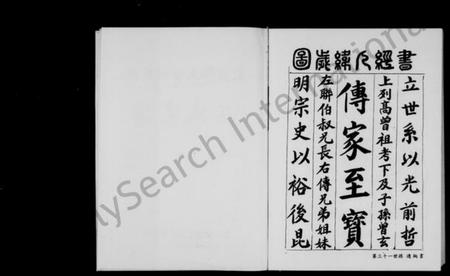 書經
圖
立世系以光前哲
上列高曾祖考下及子孫曾玄
傳家至寶
左聯伯叔兄長右傳兄弟姐妹
明宗史以裕後昆
第三十一世孫 書
ilySearch International